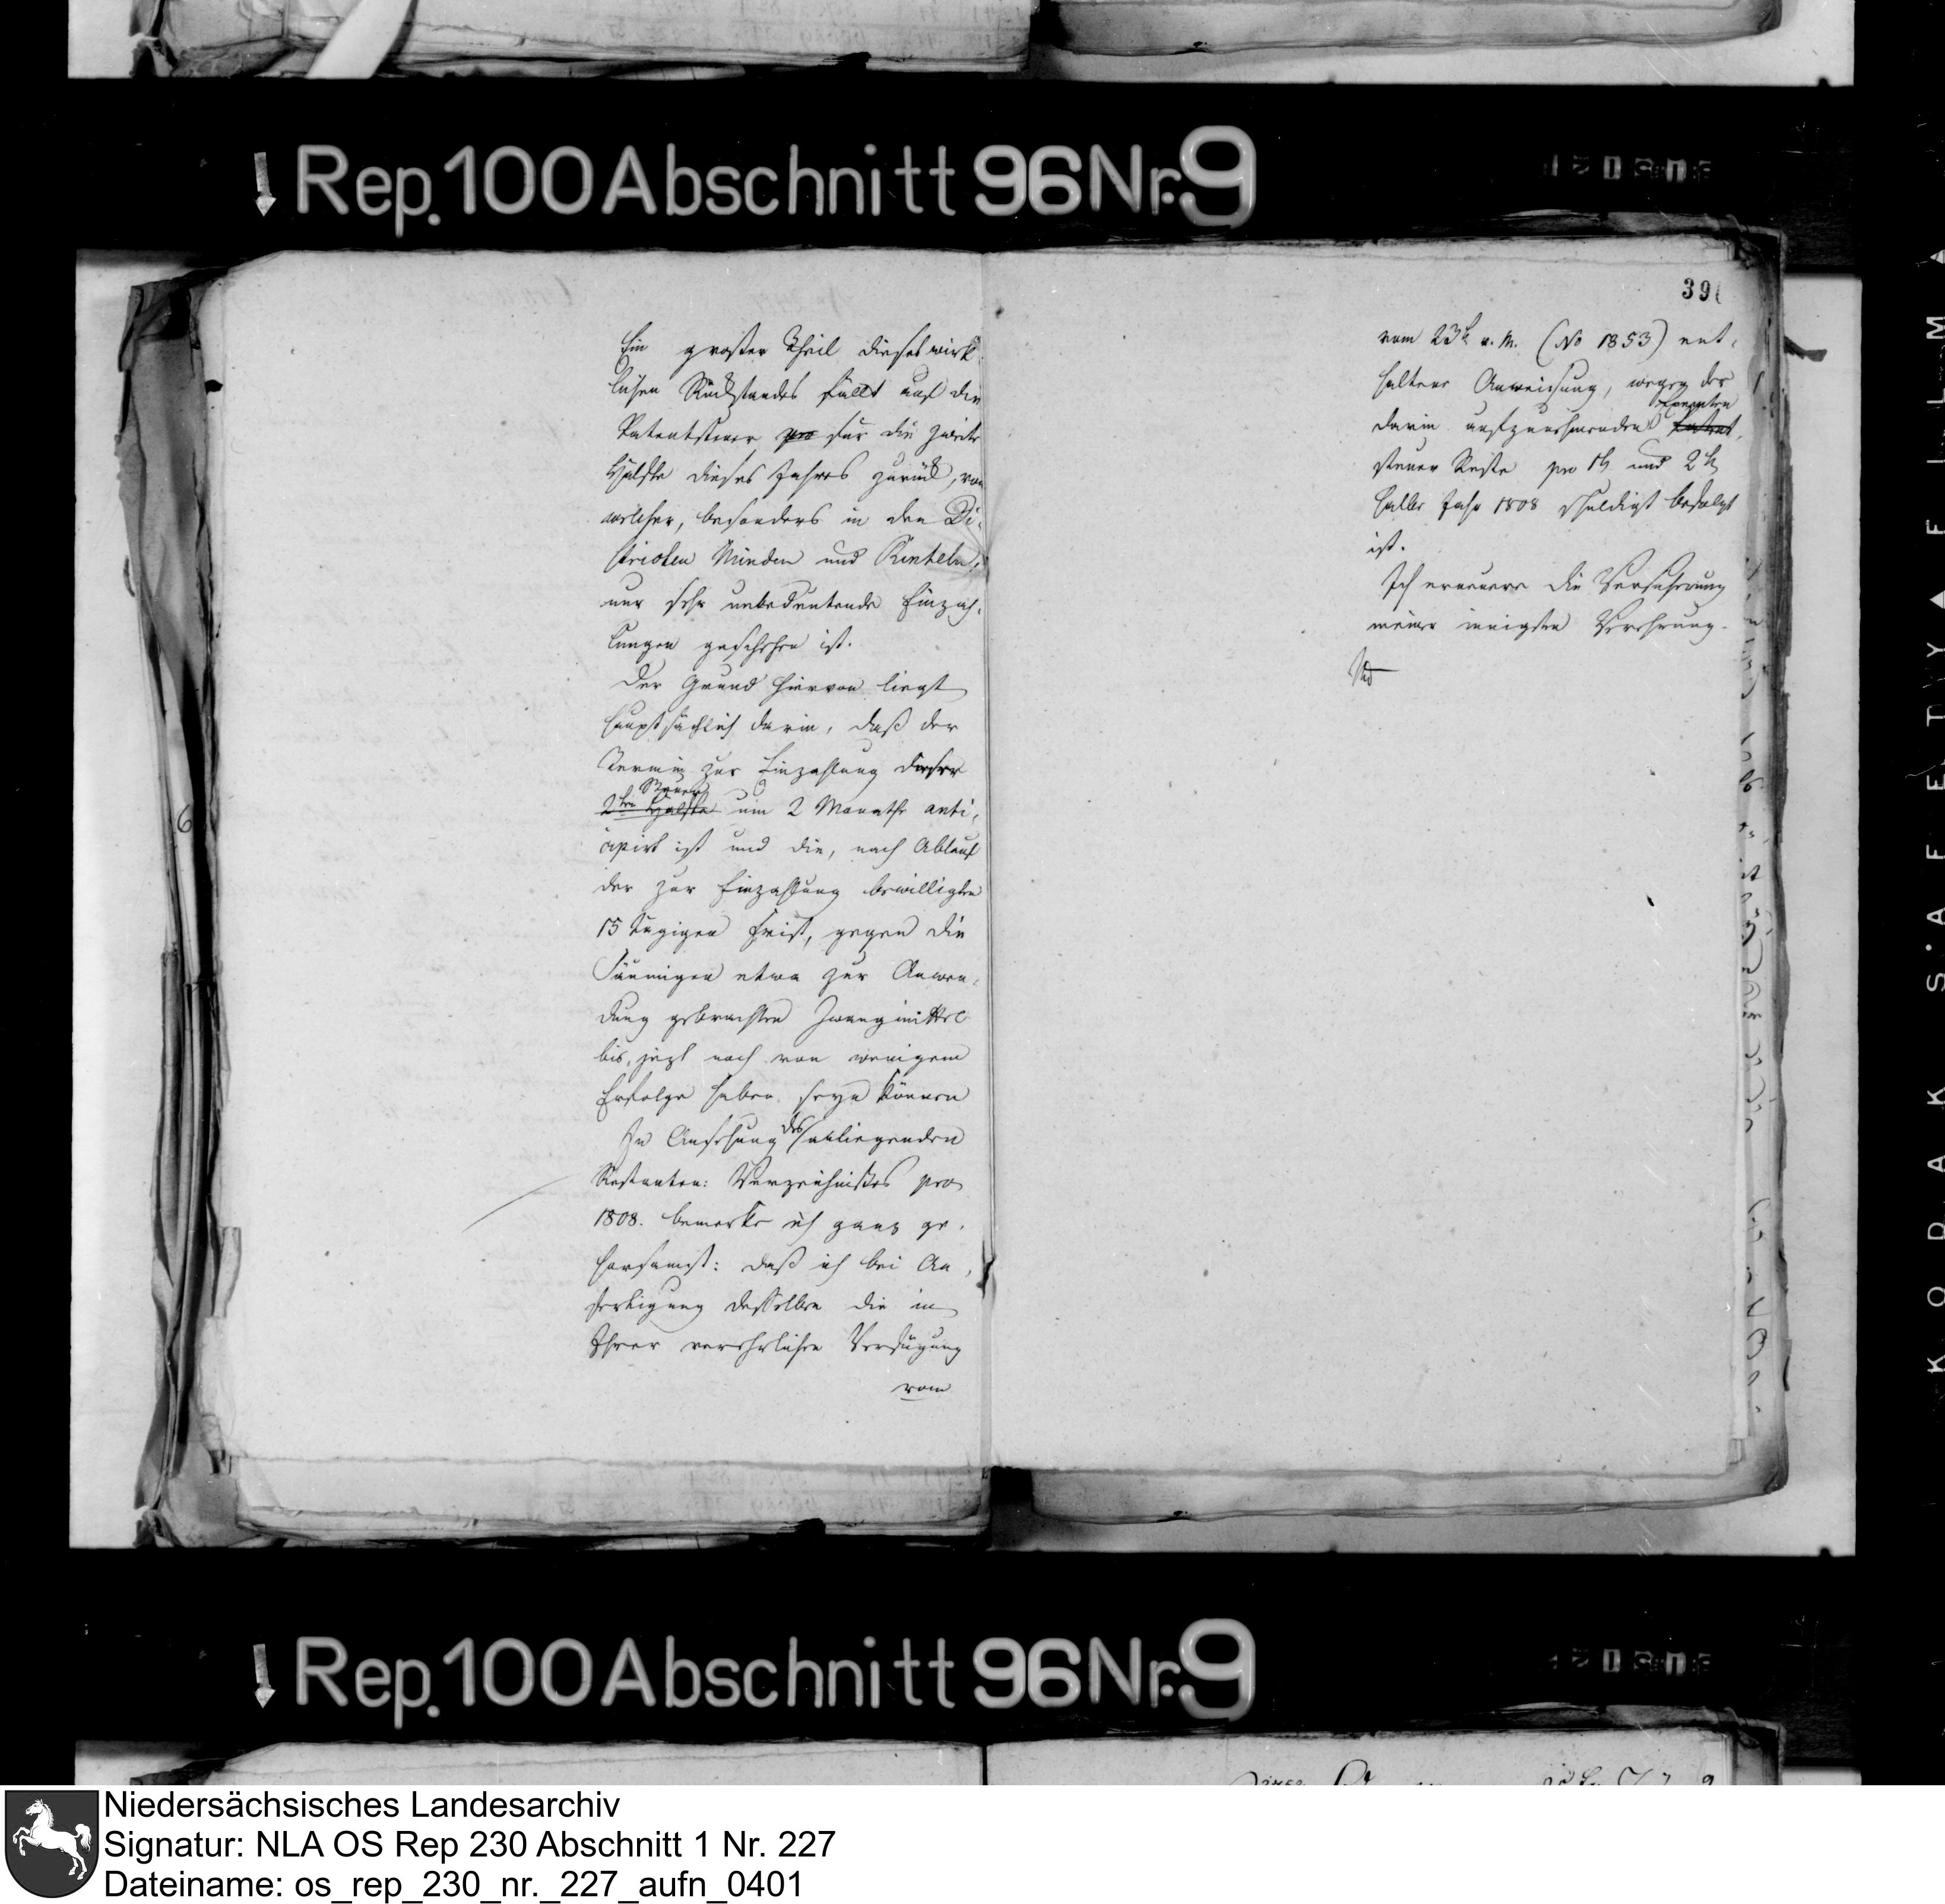 Rep. 100 Abschnitt 96 Nr. 9
Ein großer Theil dieses wirk-
lichen Rückstandes fällt auf die
Patentsteuer pro für die zweite
Hälfte dieses Jahres zurück, von
welcher, besonders in den Di-
stricten Minden und Rinteln,
nur sehr unbedeutende Einzah-
lungen geschehen ist.
Der Grund hiervon liegt
hauptsächlich darin, daß der
Termin zur Einzahlung dieser
Steuer
2ten Hälfte um 2 Monathe anti-
cipirt ist und die, nach Ablauf
der zur Einzahlung bewilligten
15 tägigen Frist, gegen die
Säumigen etwa zur Anwen-
dung gebrachten Zwangmittel
bis jezt noch von wenigem
Erfolge haben seyn können
In Ansehung des anliegenden
Restanten: Verzeichnißes pro
1808. bemerke ich ganz ge-
horsamst: daß ich bei An-
fertigung desselben die in
Ihrer verehrlichen Verfügung
vom
39
vom 23t v. M. (No 1853) ent-
haltene Anweisung, wegen der
darin aufzunehmenden Patent
steuer Reste pro 1t und 2t
halbe Jahr 1808 schuldigst befolgt
ist.
Ich erneuere die Versicherung
meiner innigsten Verehrung.
6
KODAK SAFETY FILM
Rep. 100 Abschnitt 96 Nr. 9
Niedersächsisches Landesarchiv
Signatur: NLA OS Rep 230 Abschnitt 1 Nr. 227
Dateiname: os_rep_230_nr._227_aufn_0401